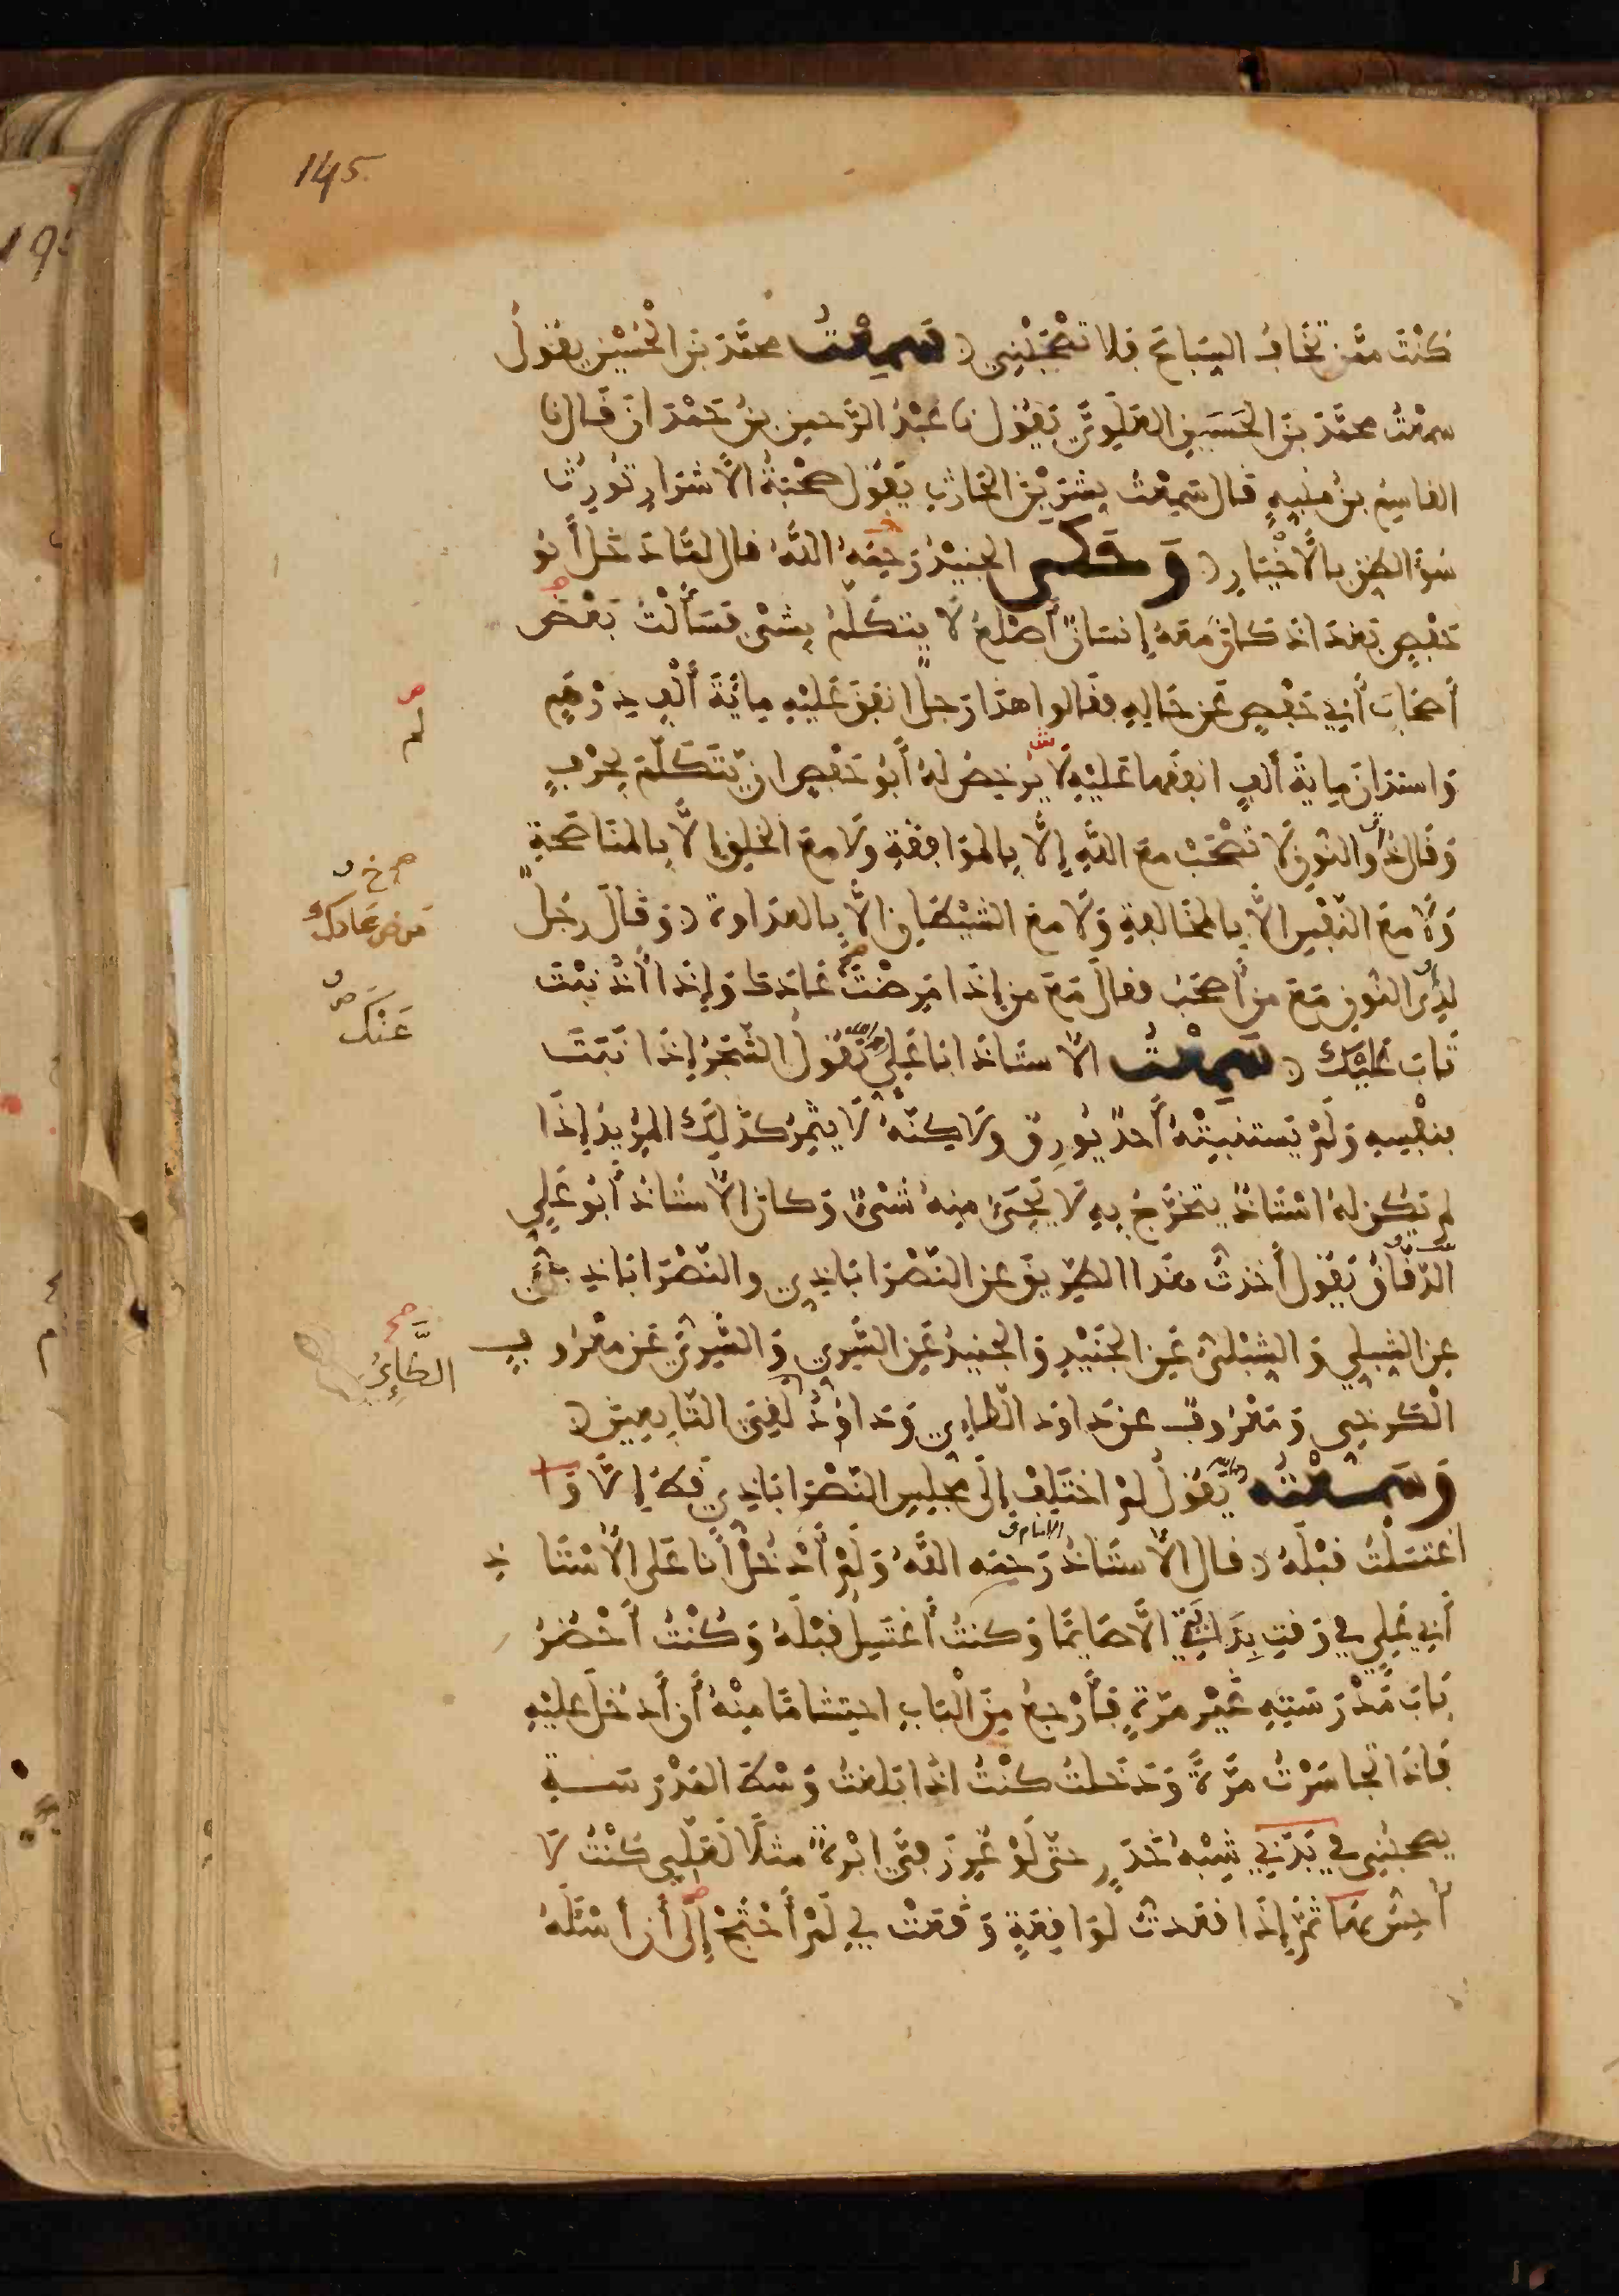 145.
كُنْتَ ممَّن تَخَافُ السِّبَاعَ فلا تصْحَبْنِي سَمِعْتُ محمَّدَ بْنَ الْحُسَيْنِ يقول
سمعْتُ محمَّدَ بنَ الحَسَنِ العَلَوِيَّ يَقُول نا عَبْدُ الرَّحمن بنُ حَمْدَان قَال نا
القاسِمُ بنُ مُنَبِّهٍ قَال سَمِعْتُ بِشْرَ بْنَ الحَارِثِ يَقُول صُحْبَةُ الأَشْرَارِ تُورِثُ
سُوءَ الظنِّ بالأَخْيَارِ وَحَكَى الجنيْدُ رَحِمَهُ اللَّهُ قال لمَّا دَخَلَ أَبُو
حَفْصٍ بَغْدَاذ كَانَ مَعَهُ إِنسَانٌ أَصْلَعُ لَا يتكلَّمُ بِشَىْءٍ فَسَأَلْتُ بَعْضَ
أَصْحَابِ أَبِي حَفْصٍ عَن حَالِهِ فقَالوا هذَا رَجلٌ انفَقَ عَلَيْهِ مِايَةَ أَلْفِ دِرْهَمٍ
وَاستدَانَ مِايَةَ أَلفٍ انفقَهَا عَلَيْهِ لَا يُرَخِّصُ لهُ أَبُو حَفْصٍ ان يَّتَكَلَّمَ بِحَرْفٍ
وَقَال ذُو النُّونِ لَا تَصْحَبْ معَ اللَّهِ إِلَّا بِالموَافَقَةِ ولَا معَ الخَلْقِ إلَّا بِالمنَاصَحَةِ
وَلَا معَ النَّفْسِ الَّا بِالمخَالفَةِ وَلَا معَ الشَّيْطَانِ الَّا بِالعدَاوةِ وَقَالَ رَجُلٌ
لِذِى النُّونِ مَعَ منْ أَصْحَبُ فقالَ مَعَ من إِذَا مَرِضْتَ عَادَكَ وَإِذَا أَذْنَبْتَ
تَابَ عَلَيْكَ سَمِعْتُ الأُستَاذ ابَا عَلِيٍّ يَّقُولُ الشَّجَرُ إِذَا نَبَتَ
بنَفْسِهِ وَلَمْ يَستنبِتْهُ أَحدٌ يُورِقُ ولَاكِنَّهُ لَا يُثْمِرُ كَذَلِكَ المرِيدُ إِذَا
لم يَكُن لهُ اسْتَاذٌ يتخَرَّجُ بِهِ لَا يَجِىءُ مِنهُ شَىْءٌ وَكانَ الأُستَاذُ أَبُو عَلِي
الدَّقَّاقُ يَقُول أَخذتُ هذَا الطرِيقَ عن النَّصْرَابَاذِي والنَّصْرَابَاذِي
عن الشِّبلِي وَالشِّبْلِيُّ عَنِ الجُنَيْدِ وَالجنيدُ عَنِ السَّرِي وَالسَّرِيُّ عَن معْرُوفٍ
الْكَرخِي وَمَعْرُوفٌ عن دَاوُد الطاءِي وَدَاوُدُ لَقِيَ التَّابِعِينَ
وَسَمِعْتُهُ يَّقُولُ لمْ اختَلِفْ إِلَى مَجْلِسِ النَّصْرَابَاذِي قَطُّ إِلَّا وَ
اغتَسَلْتُ قبْلَهُ قال الأُستَاذُ الامَامُ رَحِمَه اللَّهُ وَلَمْ أَدْخُلْ أَنَا عَلَى الأُسْتَاذِ
أَبِي عَلِي في وَقتِ بِدَايَتِي الَّا صَايِمًا وَكنتُ أَغتَسِلُ قَبْلَهُ وَكُنْتُ أَحْضُرُ
بَابَ مَدْرَسَتِهِ غَيْرَ مَرَّةٍ فَأَرْجعُ مِنَ الْبَابِ احتِشَامًا مِنْهُ أَن أَدخُلَ عليْهِ
فَاذَا تجَاسَرْتُ مرَّةً وَدَخلتُ كُنْتُ اذَا بَلغتُ وَسْطَ المَدْرَسَةِ
يصحبُنِي في بَدَنِي شِبْهُ خَدَرٍ حتَّى لَوْ غُرِزَ فِيَّ ابْرَةٌ مثلًا لَعَلِّي كُنْتُ لَا
أُحِسُّ بِهَا ثمَّ إِذَا قعَدتُ لوَاقِعَةٍ وَقَعَتْ لِي لَمْ أَحْتَجْ إِلَى أَن أَسْئَلَهُ
مَرِضَ عَادك
عَنْكَ
الطَّاءِيُّ
صح